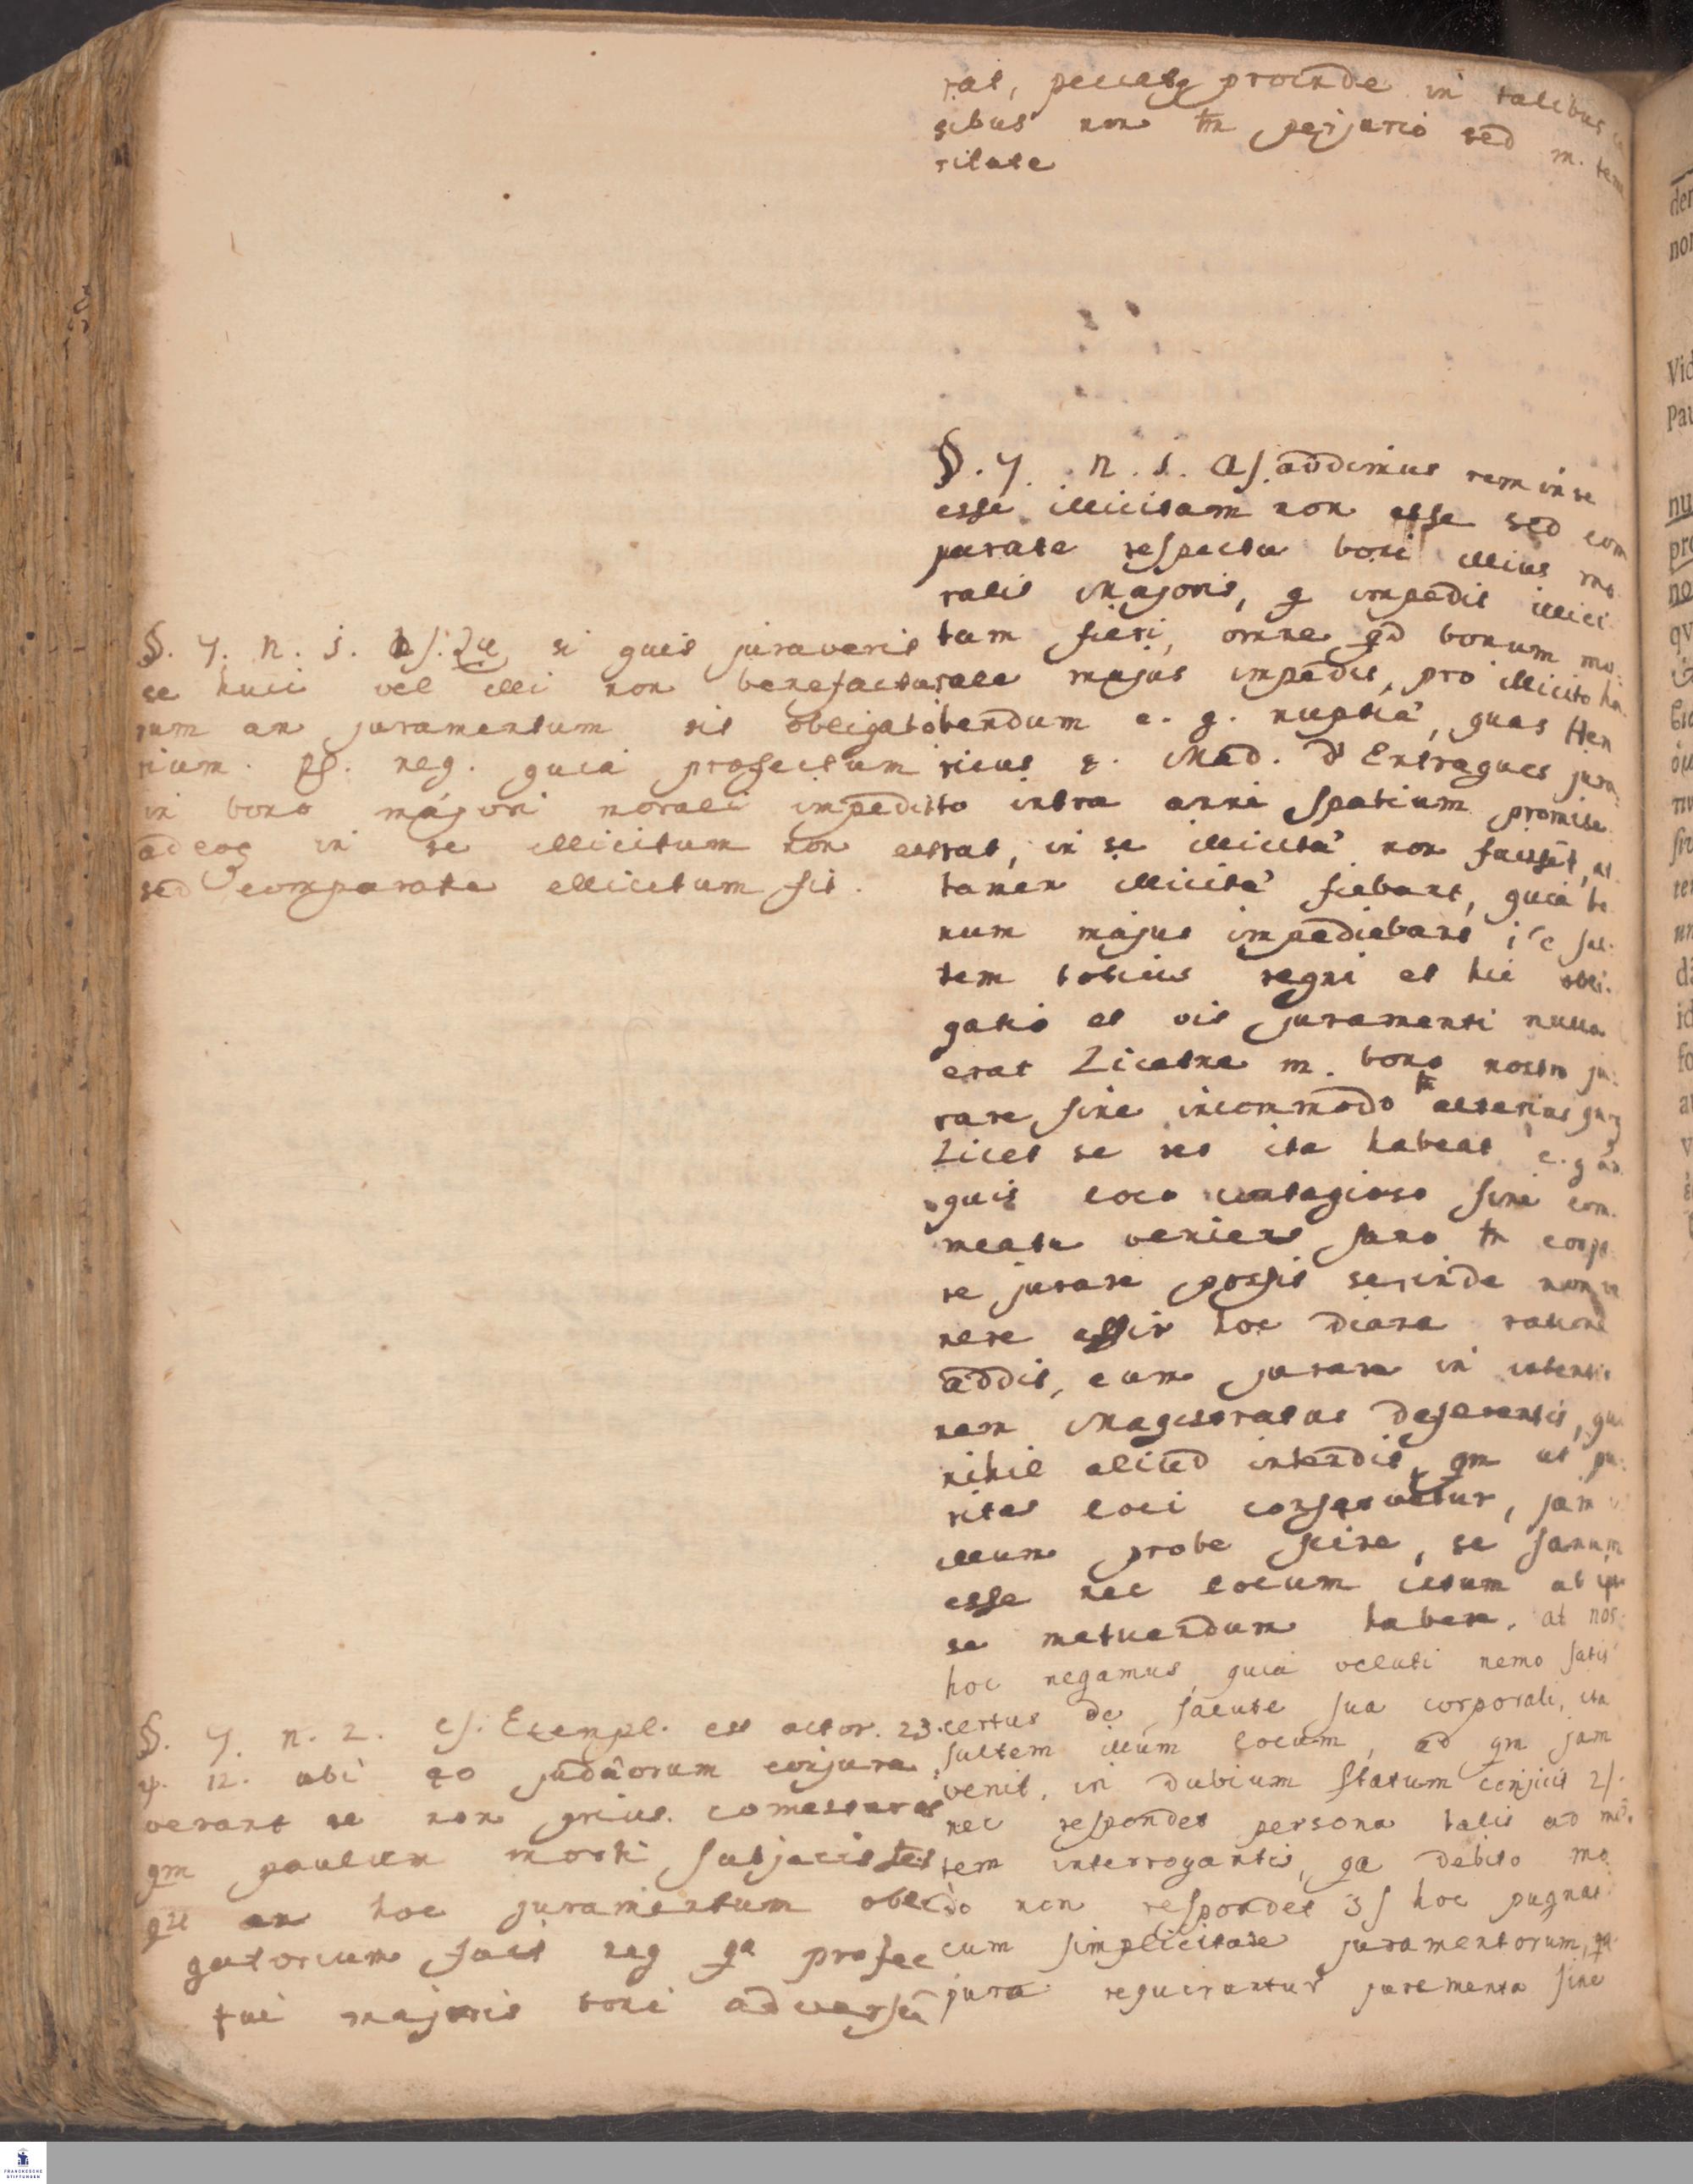 rat, peccatq proinde in talibus
sibus non tm perjurio sed m. teme
ritate
§. 7. n. 1. a/. addimus rem in se
esse illicitam non esse sed com
parate respectu boni illius mo
ralis majoris, q impedit illici
tum fieri, omne qd bonum mo
rale majus impedit, pro illicito ha
bendum e. g. nuptiae, quas Hen
ricus 4. Mad. d'Entragues jura
to intra anni spatium promise
rat, in se illicitae non fuissēt, at
tamen illicitae fiebant, quia bo
num majus impediebant i. e sal
tem totius regni et hic obli
gatio et vis juramenti nulla
erat Licetne m. bono nostro ju
rare, sine incommodo tm alterius
Licet se res ita habeat e. g
quis loco contagioso sine com
meatu veniens sano tm corpo
re jurare possit se inde non ve
nere hoc Diana ratione
addit, eum jurare in intentio
nem Magistratus deferentis, qui
nihil aliud intendit, qm ut pu
ritas loci conservetur, jam
illum probe scire, se sanum
esse nec locum istum ab ip
se metuendum habere. at nos
hoc negamus, quia veluti nemo satis
certus de salute sua corporali, ita
saltem illum locum, ad qm jam
venit, in dubium statum conjicit 2/.
nec respondet persona talis ad men
tem interrogantis, qa debito mo
do non respondet 3/ hoc pugnat
cum simplicitate juramentorum, qa
jura requirantur juramenta sine
§. 7. n. 1. b/. Qu si quis juraverit
se huic vel illi non benefactu
rum an juramentum sit obligato
rium. Rs. neg. quia profectum
in bono majori morali impedit
adeoq in se illicitum non est
sed comparate illicitum sit.
§. 7. n. 2. c/. Exempl. est actor. 23.
v. 12. ubi 40 judaeorum conjura
verant se non prius comesturos
qm paulum morti subjecissēt
qu an hoc juramentum obli
gatorium fuit neg qa profec
tui majoris boni adversū